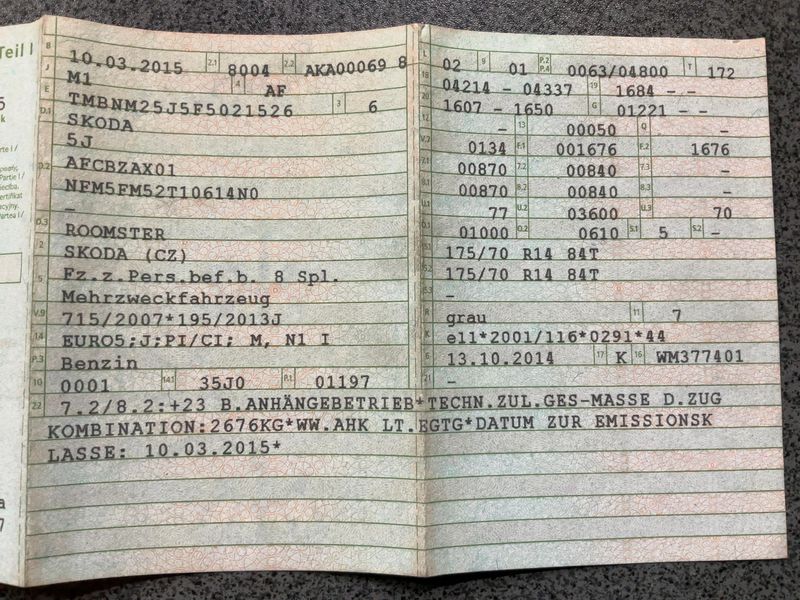 Teil I
B 10.03.2015 2.1 8004 2.2 AKA00069 8
J M1 4 AF
E TMBNM25J5F5021526 3 6
D.1 SKODA
5J
D.2 AFCBZAX01
NFM5FM52T10614N0
–
D.3 ROOMSTER
2 SKODA (CZ)
5 Fz.z.Pers.bef.b. 8 Spl.
Mehrzweckfahrzeug
V.9 715/2007*195/2013J
14 EURO5;J;PI/CI; M, N1 I
P.3 Benzin
10 0001 14.1 35J0 P.1 01197
L 02 9 01 P.2 P.4 0063/04800 T 172
18 04214 – 04337 19 1684 – –
20 1607 – 1650 G 01221 – –
12 – 13 00050 Q –
V.7 0134 F.1 001676 F.2 1676
7.1 00870 7.2 00840 7.3 –
8.1 00870 8.2 00840 8.3 –
U.1 77 U.2 03600 U.3 70
O.1 01000 O.2 0610 S.1 5 S.2 –
15.1 175/70 R14 84T
15.2 175/70 R14 84T
15.3 –
R grau 11 7
K e11*2001/116*0291*44
6 13.10.2014 17 K 16 WM377401
21 –
22 7.2/8.2:+23 B.ANHÄNGEBETRIEB*TECHN.ZUL.GES-MASSE D.ZUG
KOMBINATION:2676KG*WW.AHK LT.EGTG*DATUM ZUR EMISSIONSK
LASSE: 10.03.2015*